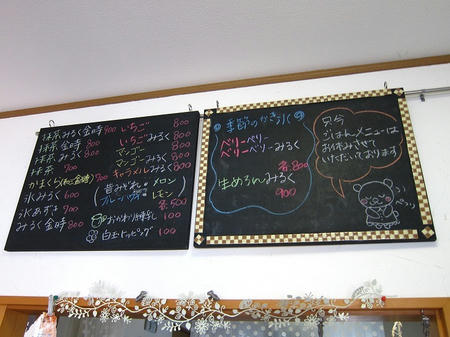 抹茶みるく金時 900
抹茶金時 800
抹茶みるく 800
抹茶 700
かまくら(和心金時) 900
氷みるく 600
氷あずき 700
みるく金時 800
いちご 800
いちごみるく 800
マンゴー 800
マンゴーみるく 800
キャラメルみるく 750
昔みぞれ メロン
ブルーハワイ レモン
各500
おかわり練乳 100
白玉トッピング 100
季節のかき氷
ベリーベリー
ベリーベリーみるく
各800
生めろんみるく
900
只今
ごはんメニューは
お休みさせて
いただいております
ペコッ